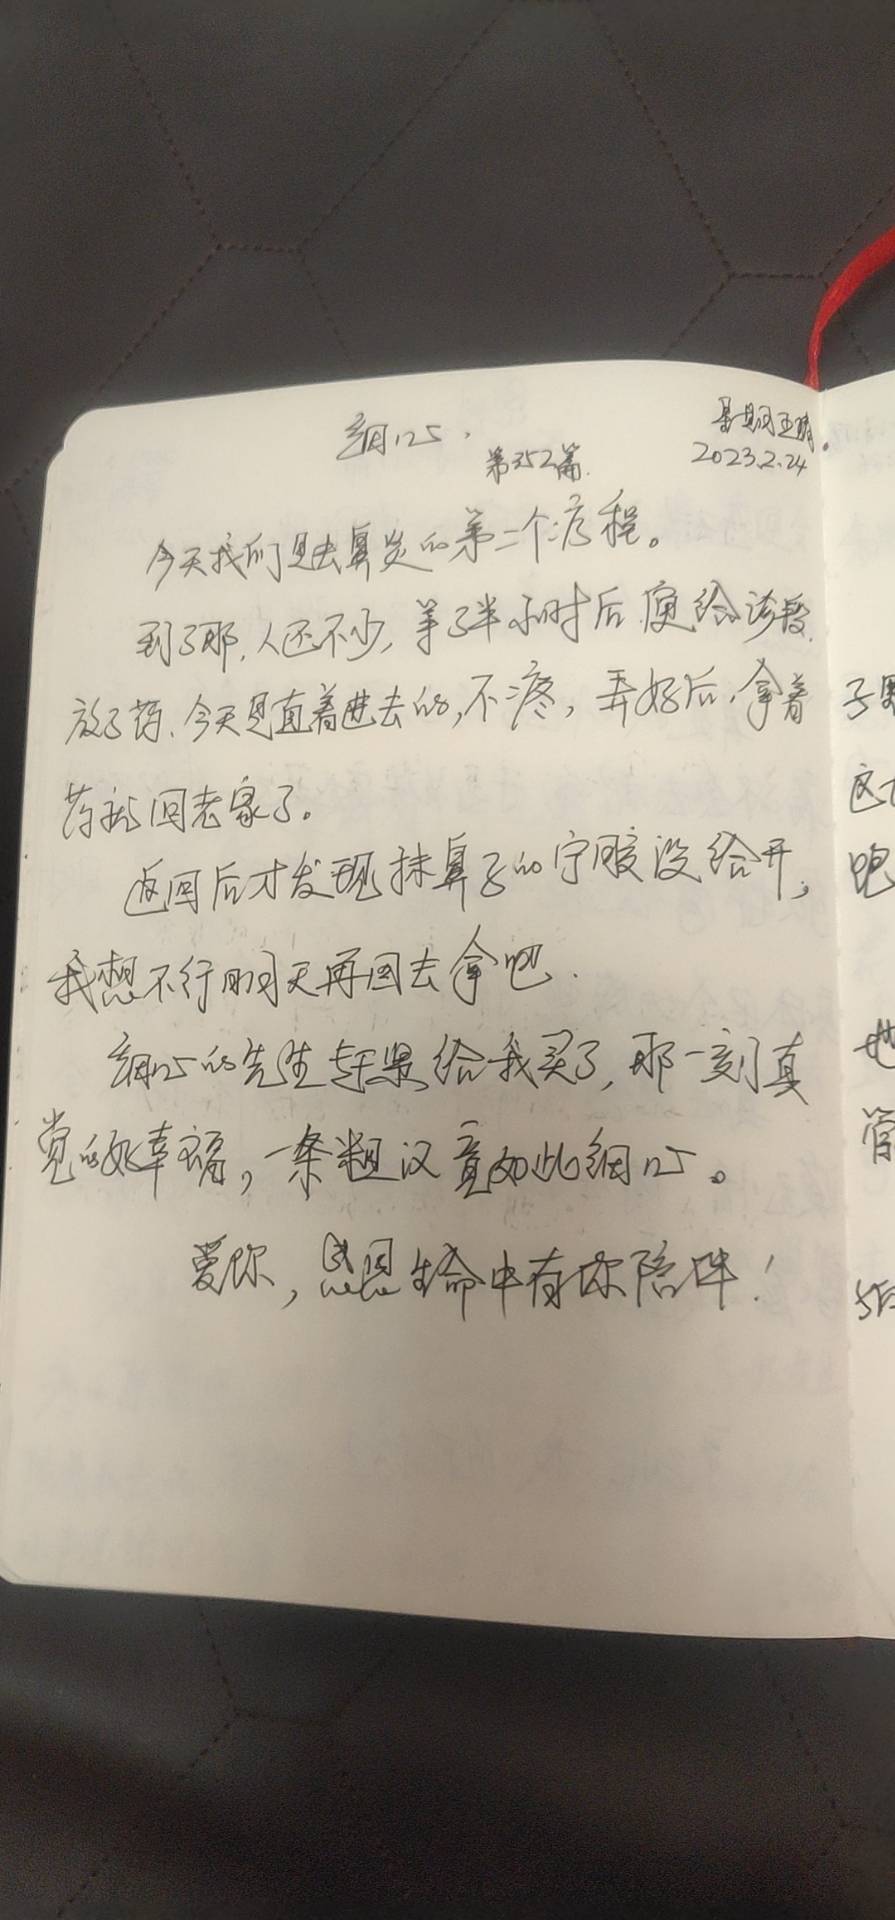 细心.
星期五晴。
第352篇.
2023.2.24
今天我们是去鼻炎的第二个疗程。
到了那,人还不少,等了半小时后,便给诊疗
放了药、今天是直着进去的,不疼,弄好后,拿着
药就回老家了。
返回后才发现抹鼻子的
没给开,
我想不行明天再回去拿吧.
细心的先生赶紧给我买了,那一刻真
觉的好幸福,一条粗汉竟如此细心。
爱你,感恩生命中有你陪伴!
这
跑
他
管